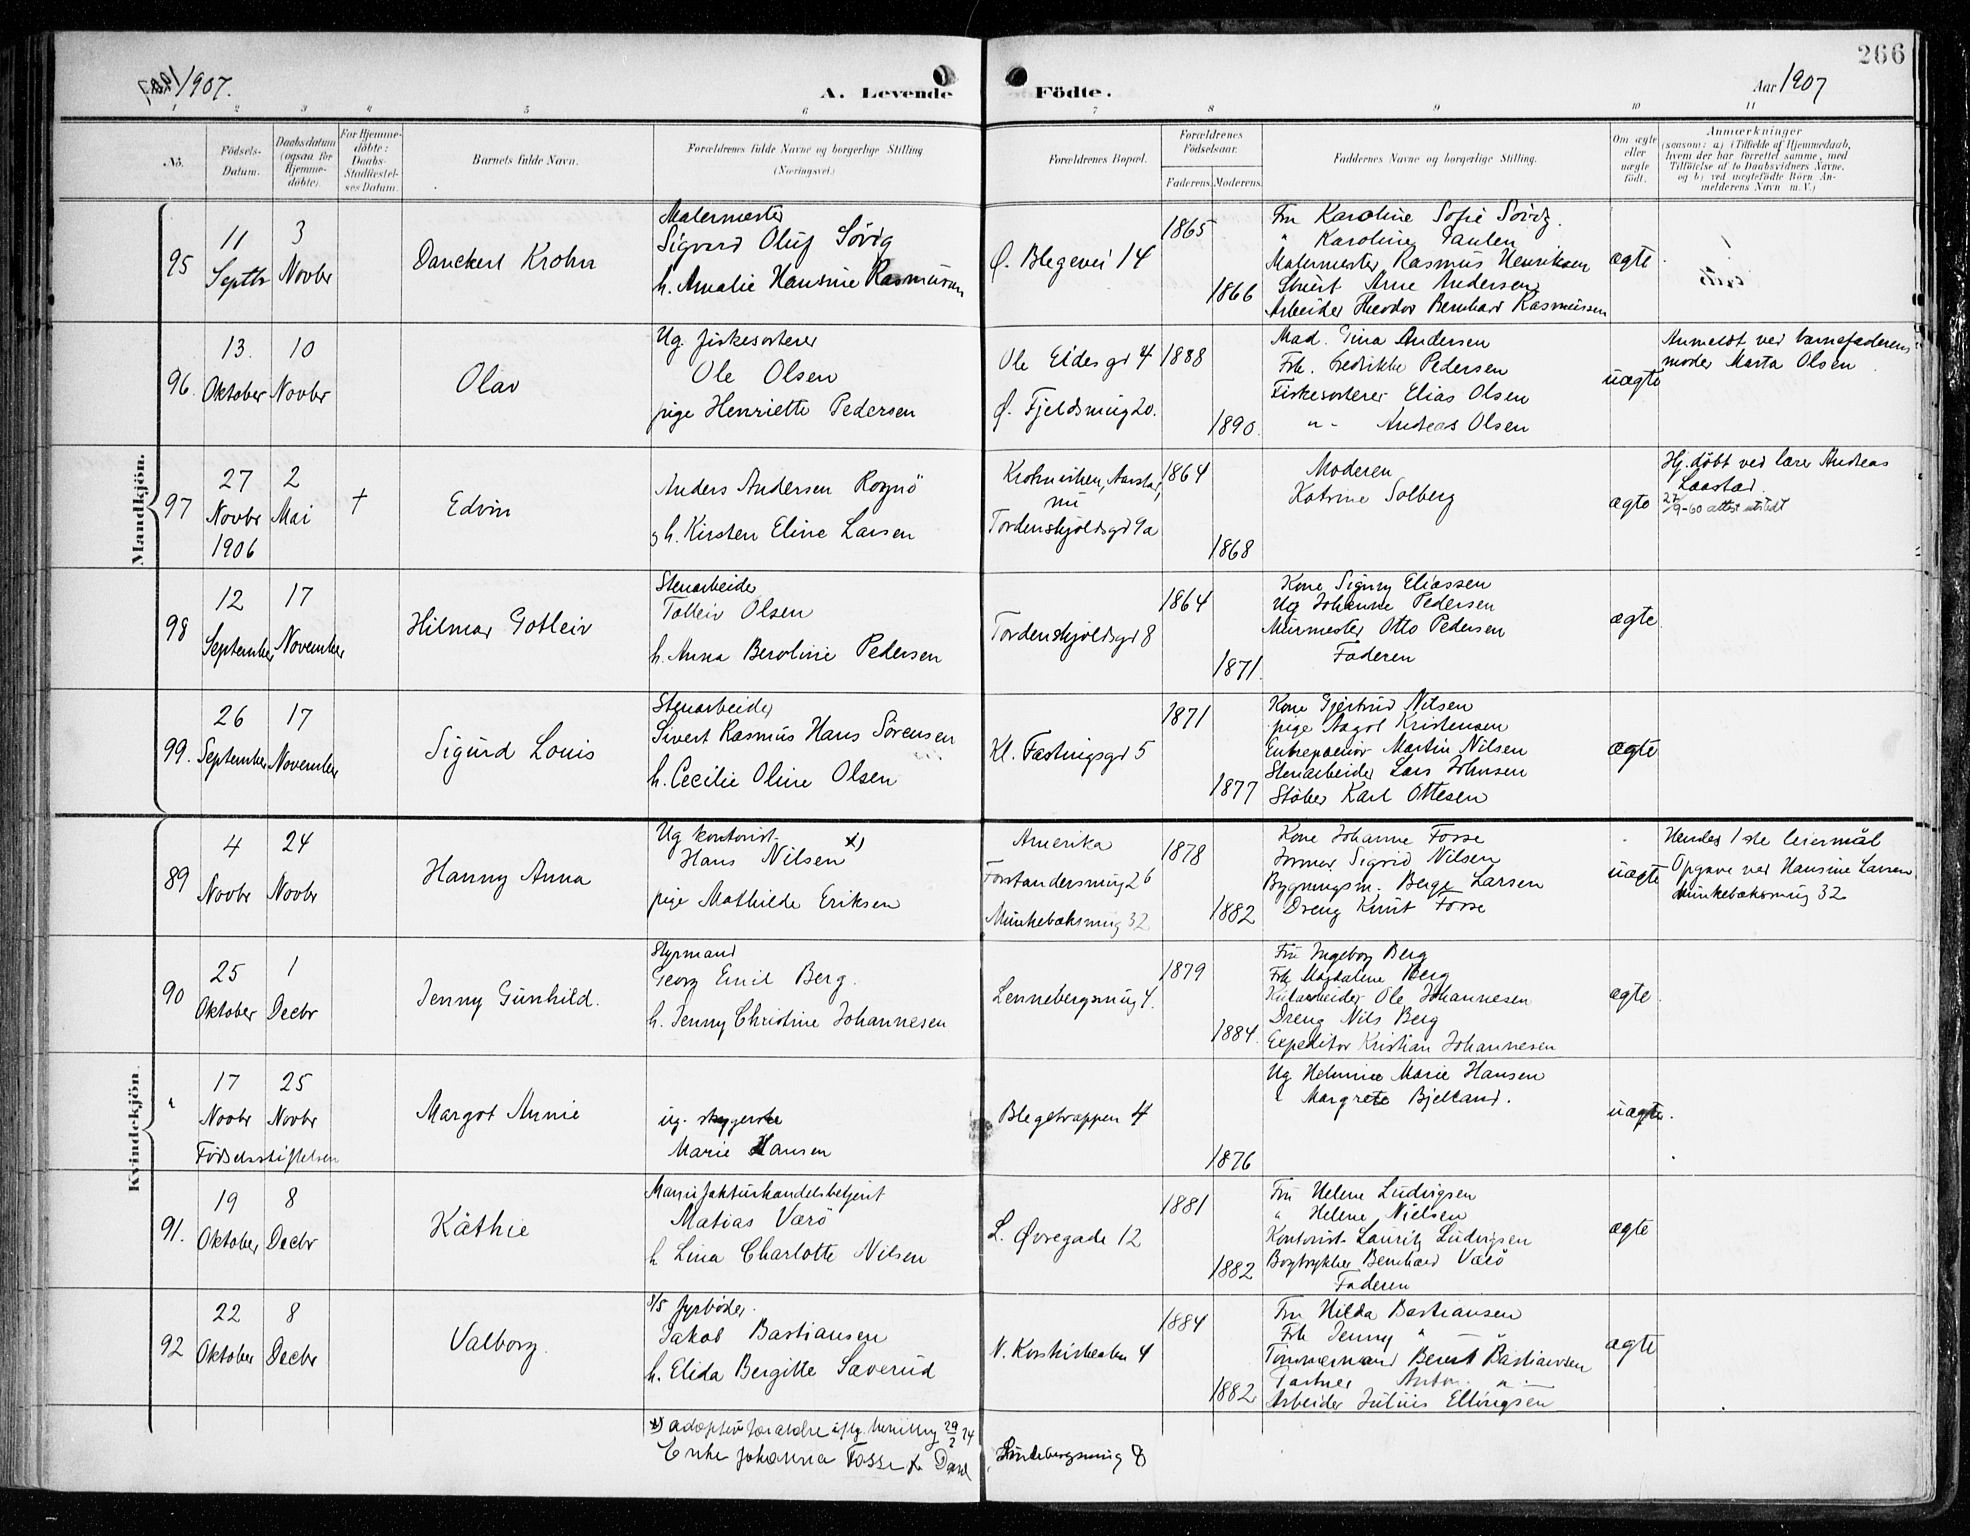 266
1907.
A. Levende
Födte.
Aar 1907
1 2 3 4 5 6 7 8 9 10 11
No.
Födsels-Datum.
Daabsdatum (ogsaa for Hjemme-döbte).
For Hjemme-döbte: Daabs-Stadfæstel-ses Datum.
Barnets fulde Navn.
Forældrenes fulde Navne og borgerlige Stilling
(Næringsvei)
Forældrenes Bopæl.
Forældrenes Födselsaar.
Faderens. Moderens.
Faddernes Navne og borgerlige Stilling.
Om ægte eller uægte födt.
Anmærkninger
(saasom: a) i Tilfælde af Hjemmedaab, hvem der har forrettet samme, med Tilföielse af to Daabsvidners Navne. og b) ved uægtefödte Börn An-melderens Navn m. V.)
Mandkjön.
95
11 Septbr
3 Novbr
Danckert Krohn
Malermester
Sigvard Oluf Sövig
h. Amalie Hansine Rasmussen
Ø. Blegevei 14
1865
1866
Fru Karoline Sofie Sövig.
" Karoline Paulen
Malermester Rasmus Henriksen
Arne Andersen
Arbeider Theodor Bernhard Rasmussen
ægte
96.
13. Oktober
10 Novbr
Olav
Ug. fiskesorterer
Ole Olsen
pige Henriette Pedersen
Ole Eides gd 4
Ø. Fjeldsmug 20.
1888
1890.
Mad. Gina Andersen
Frk. Fredrikke Pedersen
Fiskesorterer Elias Olsen
" - Andreas Olsen
uægte
Anmeldt ved barnefaderens
moder Marta Olsen
97
27 Novbr 1906
2 Mai
†
Edvin
Anders Andersen Rognö
h. Kirsten Eline Larsen
Krohnviken, Aarstad,
nu
Tordenskjoldsgd 9a
1864
1868
Moderen
Katrine Solberg
ægte
Hj. döbt ved lærer Andreas
Laastad.
27/9-60 attest utstedt
98
12 September
17 November
Hilmar Gotleiv
Stenarbeider
Tolleiv Olsen
h. Anna Beroline Pedersen
Tordenskjoldsgd 8
1864
1871.
Kone Signy Eliassen
Ug Johanne Pedersen
Murmester Otto Pedersen
Faderen
ægte.
99.
26 September
17 November
Sigurd Louis
Stenarbeider
Sivert Rasmus Hans Sörensen
h. Cecilie Oline Olsen
Kl. Fastingsgd 5
1871
1877
Kone Gjertrud Nilsen
pige Aagot Kristensen
Entreprenör Martin Nilsen
Stenarbeider Lars Johnsen
Stöber Karl Ottesen
ægte
Kvindekjön.
89
4 Novbr
24 Novbr
Hanny Anna
Ug kontorist.
Hans Nilsen x)
pige Mathilde Eriksen
Amerika
Forstandersmug 26
Munkebæksmug 32
1878
1882
Kone Johanne Fosse
Jormor Sigrid Nilsen
Bygningsm. Berge Larsen
Dreng Knut Fosse
uægte
Hendes 1ste leiermål
Opgave ved Hansine Larsen
Munkebæksmug 32
90
25 Oktober
1 Decbr
Jenny Gunhild.
Styrmand
Georg Emil Berg.
h. Jenny Christine Johannesen
Lennebergsmug 4.
1879
1884.
Fru Ingeborg Berg
Frk Magdalene Berg
Ole Johannesen
Dreng Nils Berg
Expeditor Kristian Johannesen
ægte.
"
17 Novbr
25 Novbr
Födselsstiftelsen
Margot Annie
ug. sygerske
Marie Hansen
Blegetrappen 4
1876
Ug Helmine Marie Hansen
" Margrete Bjelland.
uægte.
91.
19 Oktober
8 Decbr
Käthie
Manufakturhandelsbetjent
Matias Værö
h Lina Charlotte Nilsen
L. Øvregade 12
1881
1882
Fru Helene Ludvigsen
" Helene Nielsen
Kontorist Lauritz Ludvigsen
Bogtrykker Bernhard Værö
Faderen
ægte
92
22 Oktober
8 Decbr
Valborg.
S/S fyrböder.
Jakob Bastiansen
h. Elida Bergitte Saverud
N. Korskirkealm 4
1884
1882
Fru Hilda Bastiansen
Frk Jenny " -
Tömmermand Berent Bastiansen
Anton " -
Arbeider Julius Ellingsen
ægte
x) adoptivforældre iflg. bevilling 29/2 24
Enke Johanna Fosse f. Dale
Lindebergsmug 8